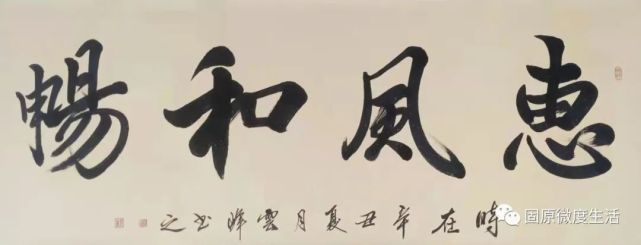 惠風和暢
時在辛丑夏月雲書之
固原微度生活